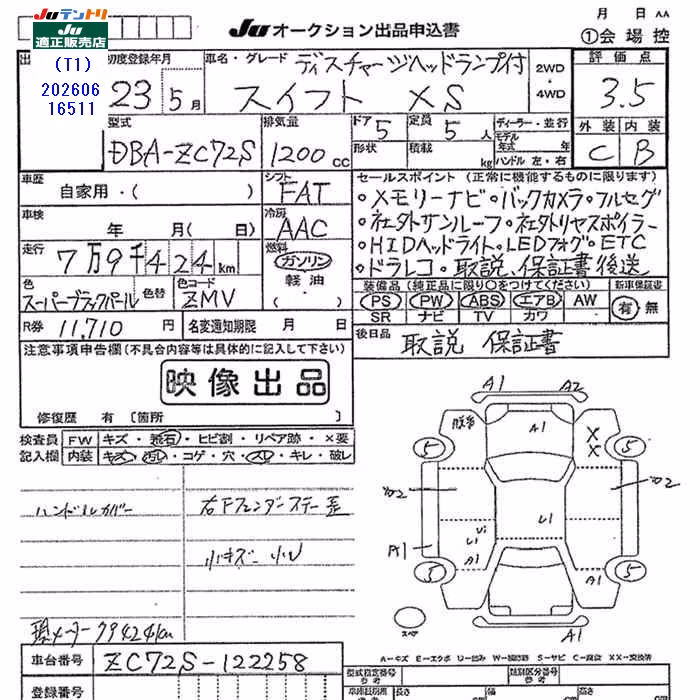 月 日 AA
JUテントリ
JU適正販売店
JU オークション出品申込書
①会場控
(T1)
202606
16511
初度登録年月
23 5月
車名・グレード
ディスチャージヘッドランプ付
スイフト XS
2WD・4WD
評価点
3.5
型式
DBA-ZC72S
排気量
1200cc
ドア 5
形状
定員 5人
積載 kg
ディーラー・並行
モデル年式 年
ハンドル 左・右
外装 内装
C B
車歴
自家用・( )
シフト
FAT
車検
年 月( 日)
冷房
AAC
走行
7万9千424km
燃料
ガソリン
軽油
・( )
色
スーパーブラックパール
色替
色コード
ZMV
R券 11,710円
名変通知期限 月 日
セールスポイント(正常に機能するものに限ります)
・メモリーナビ・バックカメラ・フルセグ
・社外サンルーフ・社外リヤスポイラー
・HIDヘッドライト・LEDフォグ・ETC
・ドラレコ・取説、保証書後送
装備品(純正品に限り○をつけてください)
PS PW ABS エアB AW
SR ナビ TV カワ
新車保証書
有・無
後日品
取説 保証書
注意事項申告欄(不具合内容等は具体的に記入して下さい)
映像出品
修復歴 有〔箇所 〕
検査員記入欄
FW キズ・飛石・ヒビ割・リペア跡・×要
内装 キズ・汚レ・コゲ・穴・スレ・キレ・破レ
ハンドルカバー
右Fフェンダーステー歪
小キズ 小U
現メーター79424km
A1 A2
A1
X
X
5 5
U2
U1
A1
U1
A1
A1
5 5
スペア
A1
A-キズ E-エクボ U-凹み W-補修跡 S-サビ C-腐食 XX-交換済
車台番号
ZC72S-122258
登録番号
型式指定番号
参考
類別区分番号
参考
長さ
幅
高さ